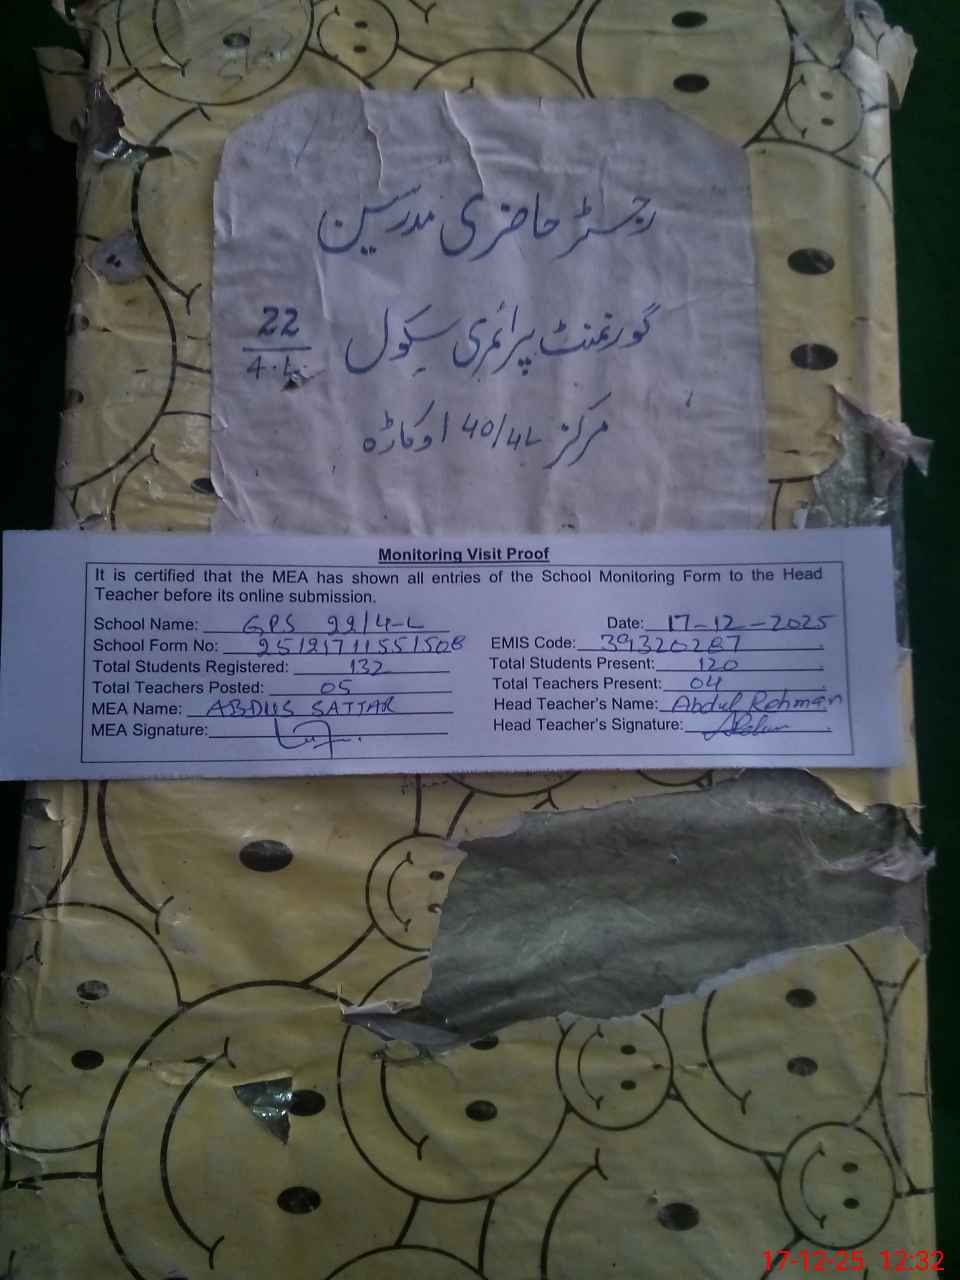 رجسٹر حاضری مدرسین
گورنمنٹ پرائمری سکول 22/4.L
مرکز 40/4L اوکاڑہ
Monitoring Visit Proof
It is certified that the MEA has shown all entries of the School Monitoring Form to the Head
Teacher before its online submission.
School Name: GPS 22/4-L Date: 17-12-2025
School Form No: 25121711551508 EMIS Code: 39320287
Total Students Registered: 132 Total Students Present: 120
Total Teachers Posted: 05 Total Teachers Present: 04
MEA Name: ABDUS SATTAR Head Teacher's Name: Abdul Rehman
MEA Signature: Head Teacher's Signature:
17-12-25 12:32